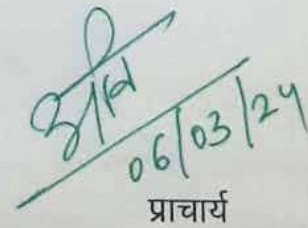 06/03/24
प्राचार्य